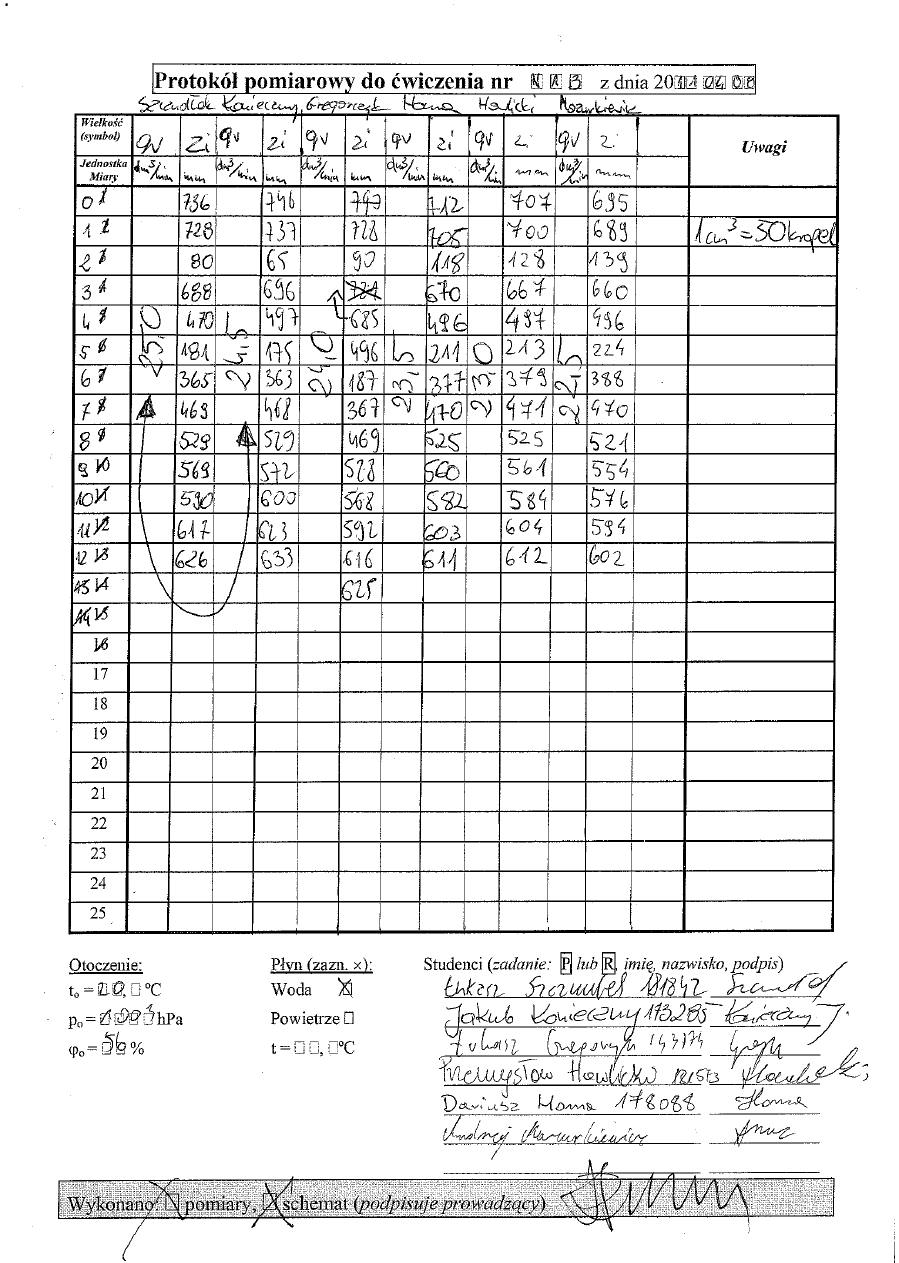 Protokół pomiarowy do ćwiczenia nr z dnia 20
Konieczny, Gregorczyk Homa
Wielkość (symbol) qv zi qv zi qv zi qv zi qv zi qv zi Uwagi
Jednostka Miary dm³/min mm dm³/min mm dm³/min mm dm³/min mm dm³/min mm dm³/min mm
0 736 746 743 712 707 695
1 728 737 728 705 700 689 1cm³ = 30 kropel
2 80 65 90 118 128 139
3 688 696 670 667 660
4 470 497 685 496 497 496
5 25,0 181 24,5 175 24,0 496 23,5 211 23,0 213 22,5 224
6 365 363 187 377 379 388
7 469 468 367 470 471 470
8 529 529 469 525 525 521
9 569 572 528 560 561 554
10 590 600 568 582 584 576
11 617 623 592 603 604 594
12 626 633 616 611 612 602
13 625
14
16
17
18
19
20
21
22
23
24
25
Otoczenie: Płyn (zazn. x): Studenci (zadanie: P lub R, imię, nazwisko, podpis)
tₒ = 20, °C Woda X
pₒ = hPa Powietrze Jakub Konieczny 173285
φₒ = 56 % t = , °C Łukasz
Przemysław
Dariusz Homa 178088 Homa
Andrzej
Wykonano: pomiary, schemat (podpisuje prowadzący)